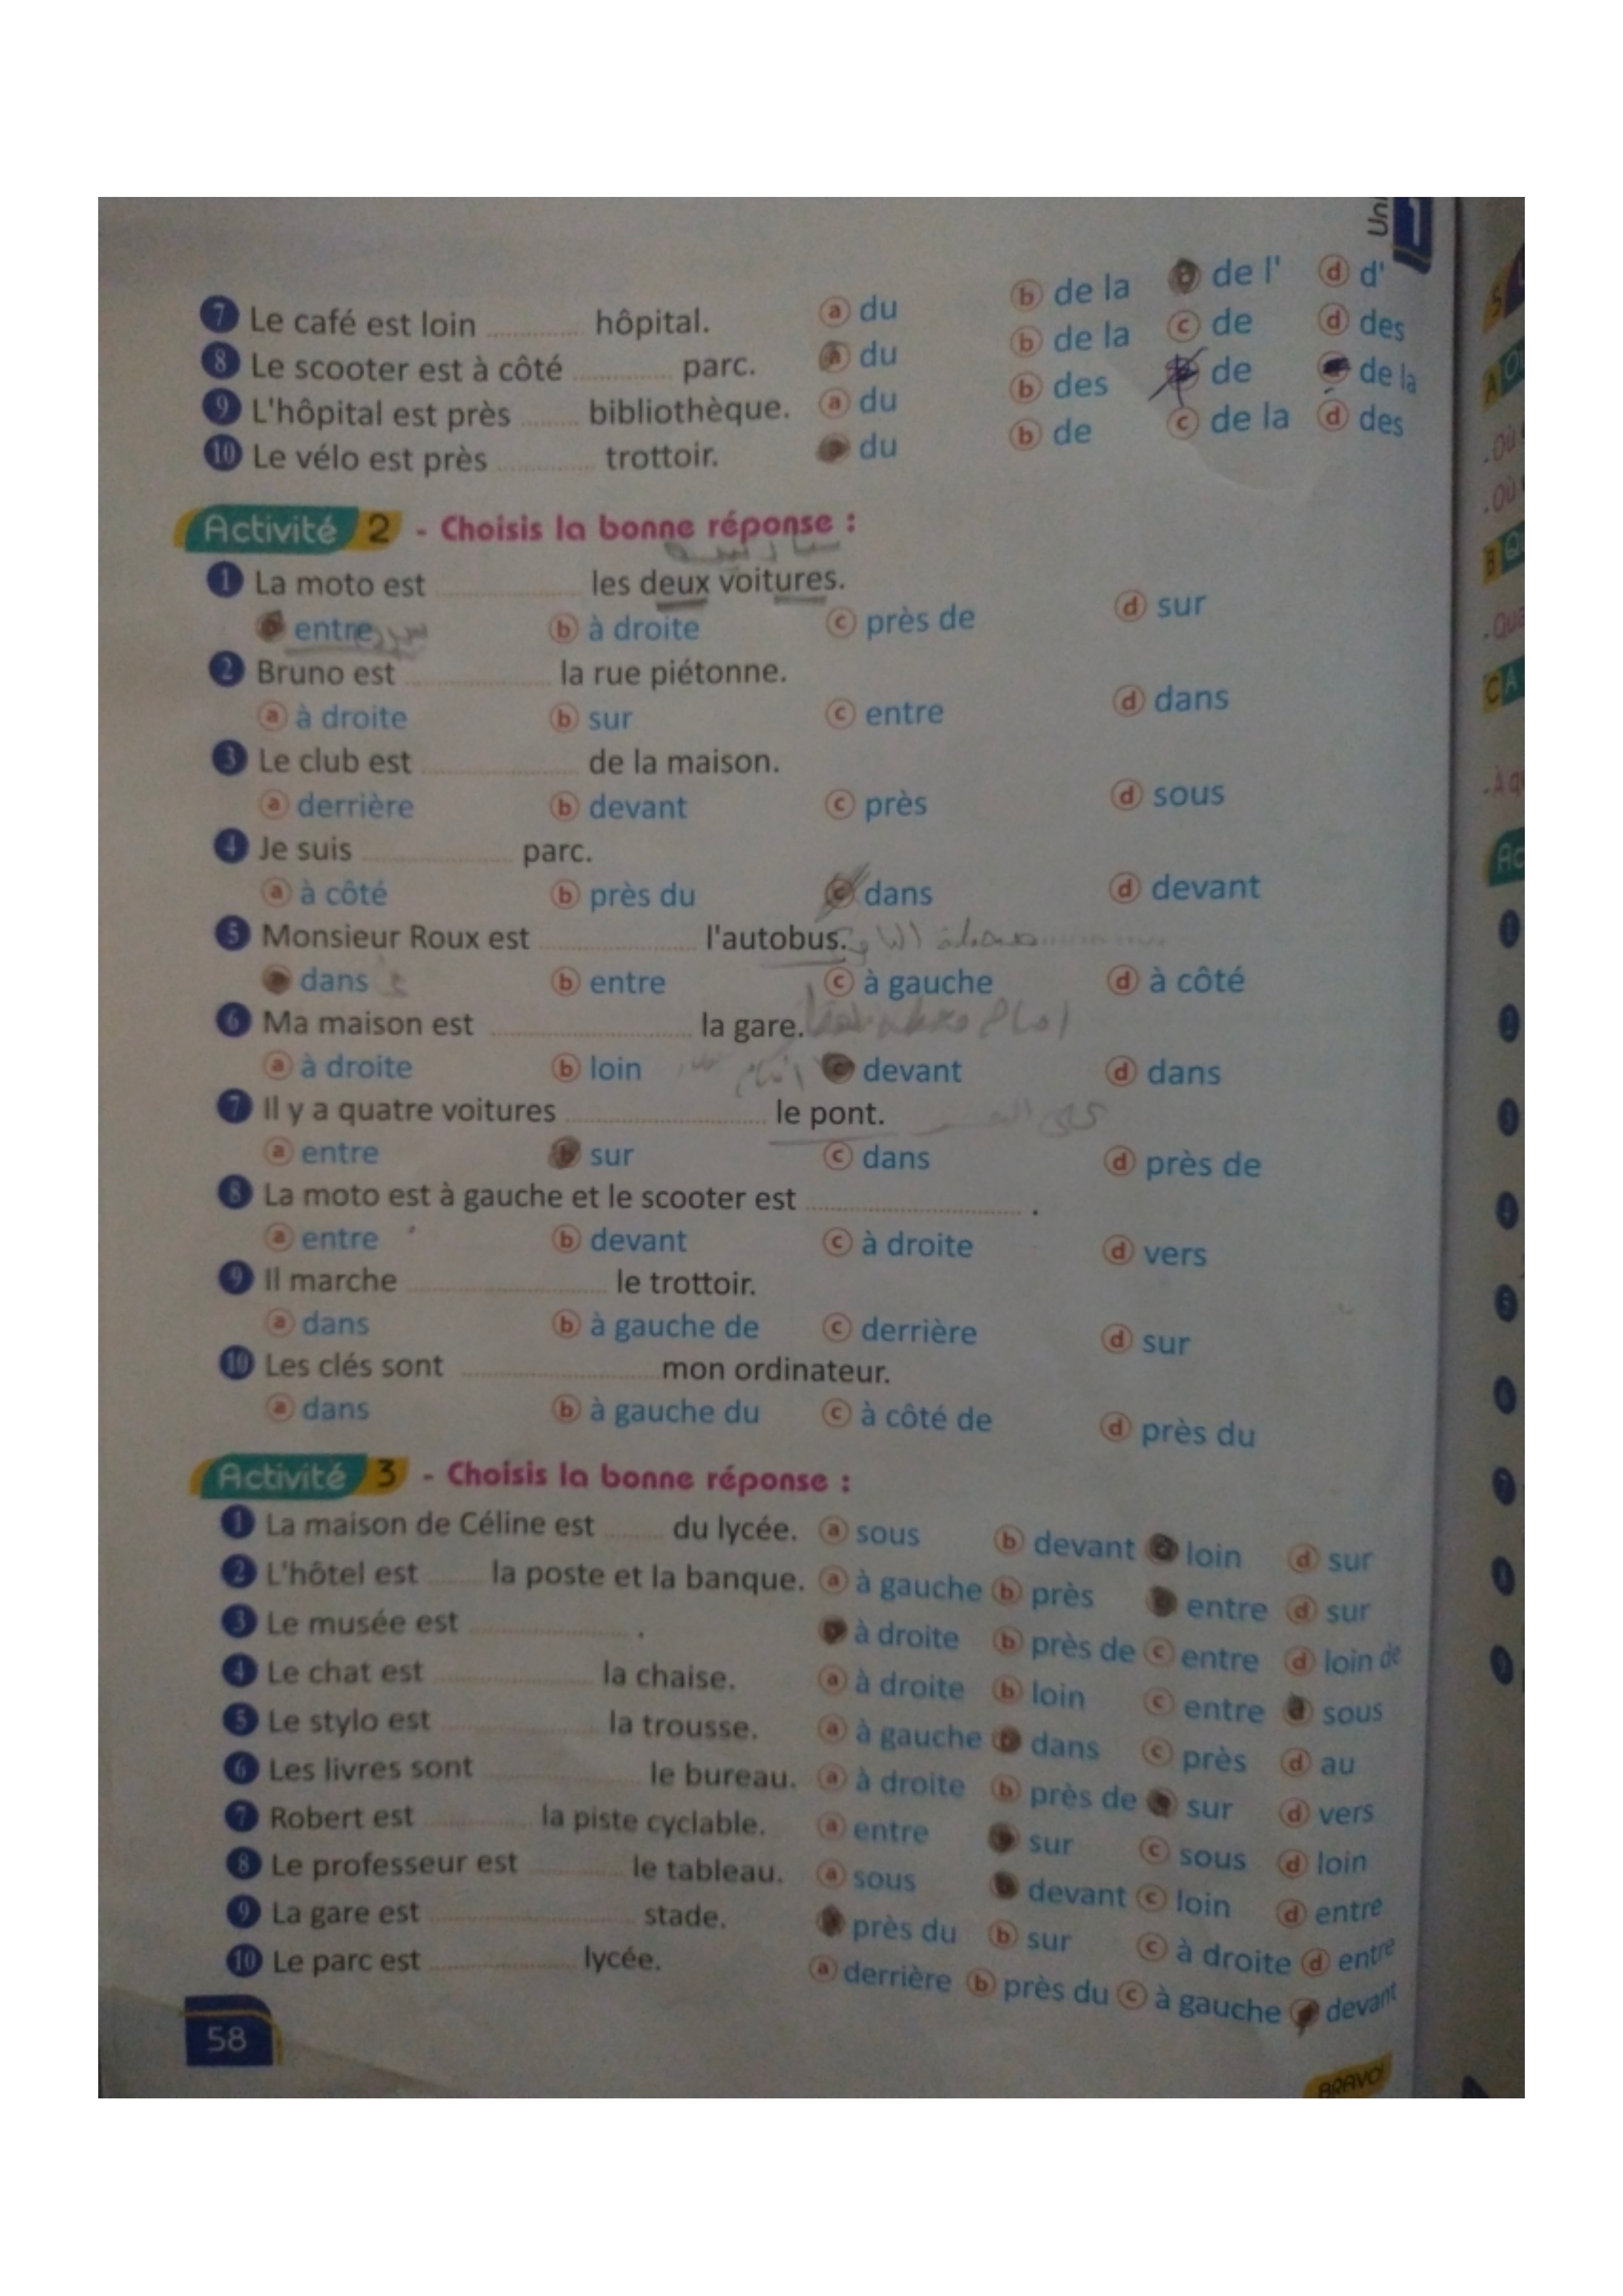 Uni 1
7 Le café est loin ............ hôpital. a du b de la c de l' d d'
8 Le scooter est à côté ............ parc. a du b de la c de d des
9 L'hôpital est près ........ bibliothèque. a du b des c de d de la
10 Le vélo est près ............ trottoir. a du b de c de la d des
Activité 2 - Choisis la bonne réponse :
1 La moto est .................. les deux voitures.
a entre b à droite c près de d sur
2 Bruno est .................. la rue piétonne.
a à droite b sur c entre d dans
3 Le club est .................. de la maison.
a derrière b devant c près d sous
4 Je suis .................. parc.
a à côté b près du c dans d devant
5 Monsieur Roux est .................. l'autobus.
a dans b entre c à gauche d à côté
6 Ma maison est ........................ la gare.
a à droite b loin امام c devant d dans
7 Il y a quatre voitures ........................ le pont.
a entre b sur c dans d près de
8 La moto est à gauche et le scooter est .......................... .
a entre b devant c à droite d vers
9 Il marche ........................ le trottoir.
a dans b à gauche de c derrière d sur
10 Les clés sont ........................ mon ordinateur.
a dans b à gauche du c à côté de d près du
Activité 3 - Choisis la bonne réponse :
1 La maison de Céline est ....... du lycée. a sous b devant c loin d sur
2 L'hôtel est ....... la poste et la banque. a à gauche b près c entre d sur
3 Le musée est .................... . a à droite b près de c entre d loin de
4 Le chat est .................... la chaise. a à droite b loin c entre d sous
5 Le stylo est .................... la trousse. a à gauche b dans c près d au
6 Les livres sont .................... le bureau. a à droite b près de c sur d vers
7 Robert est ............. la piste cyclable. a entre b sur c sous d loin
8 Le professeur est ............ le tableau. a sous b devant c loin d entre
9 La gare est .......................... stade. a près du b sur c à droite d entre
10 Le parc est .................. lycée. a derrière b près du c à gauche d devant
58
BRAVO!